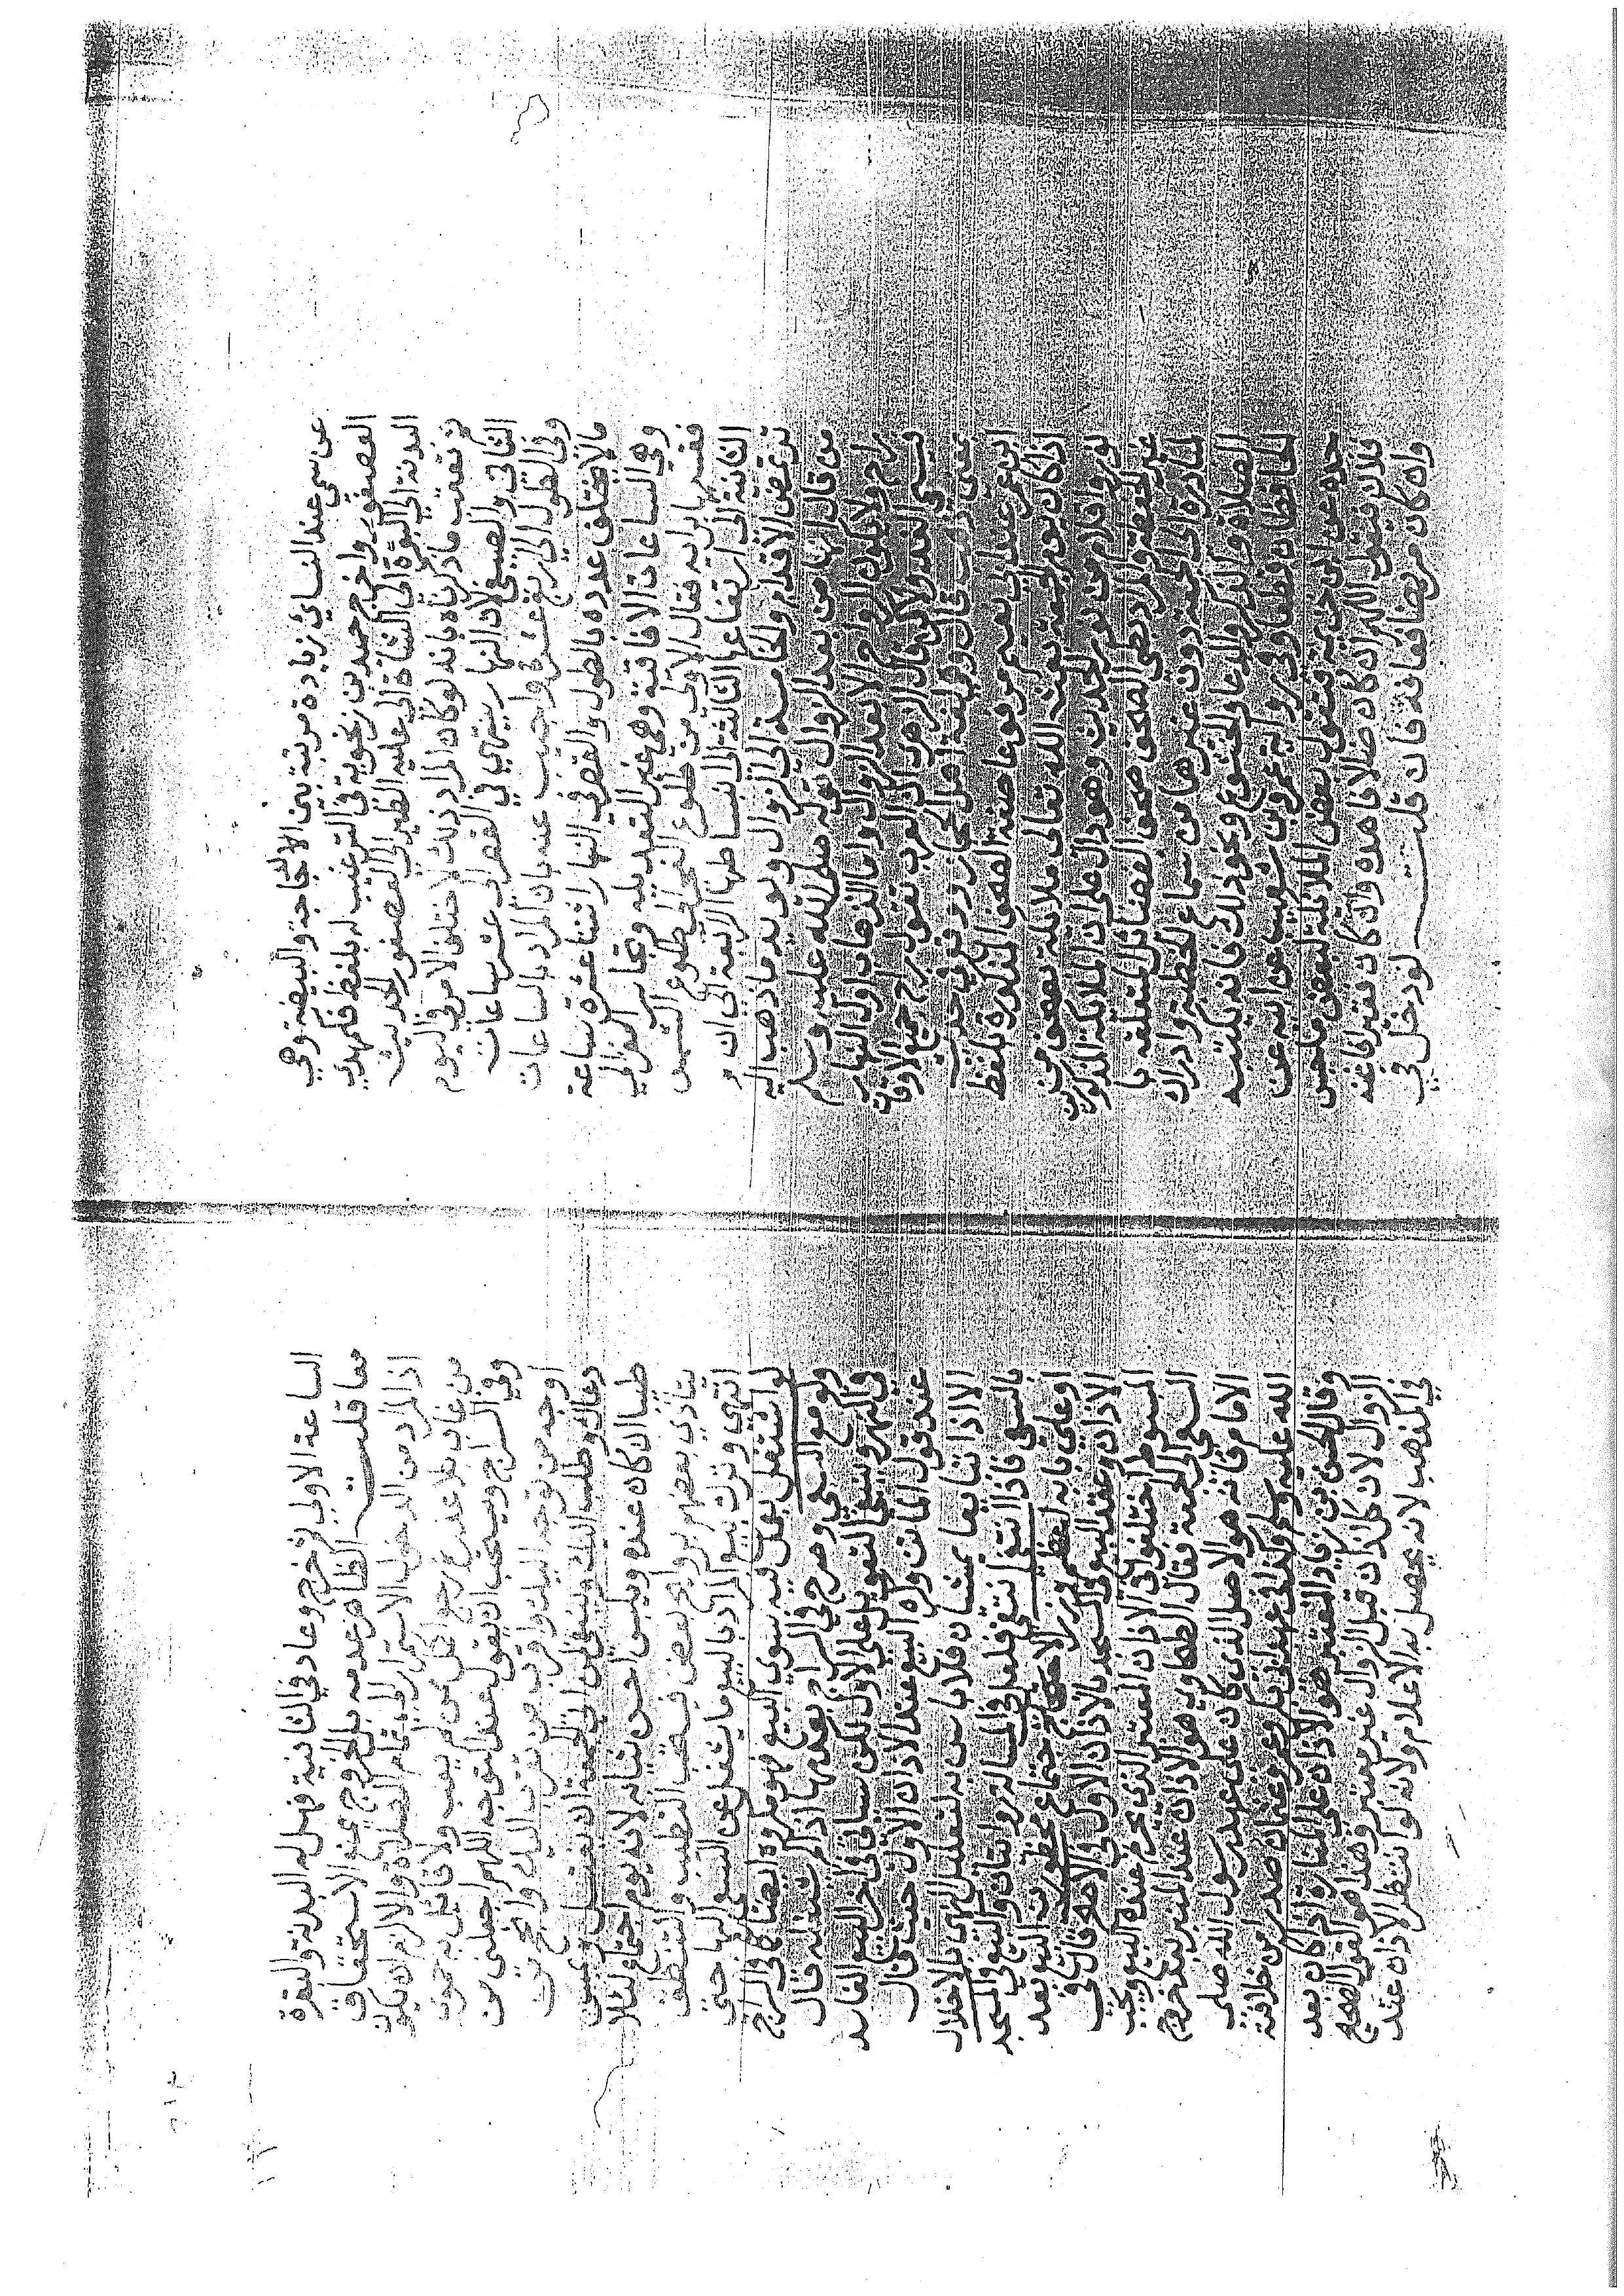 عن سمي عند النسائي زيادة مرتبة بين الدجاجة والبيضة وهي
العصفور واخرج حميد بن زنجويه في الترغيب له بلفظ فكمهدي
البدنة الى البقرة الى الشاة الى علية الطير الى العصفور الحديث
ثم تعقب ما ذكرناه بانه لو كان المراد ذلك لاختلف الامر في اليوم
الشاتي والصيفي لان النهار ينتهي في القصر الى عشر ساعات
وفي الطول الى اربع عشرة واجيب عنه بان المراد بالساعات
ما لا يختلف عدده بالطول والقصر في النهار اثنتا عشرة ساعة
وهي الساعات الافاقية وهي غير التعديلية وتجاسر الغزالي
ففسرها برايه فقال الاولى من طلوع الفجر الى طلوع الشمس
الثانية الى ارتفاعها الثالثة الى انبساطها الرابعة الى ان
ترمض الاقدام والخامسة الى الزوال ويويد ما ذهب اليه
من قال انها من بعد الزوال قوله صلى الله عليه وسلم
راح ولا يكون الرواح الا بعد الزوال واما الذهاب اول النهار
فيسمى الغدو ولاكن قال الازهري ان العرب تقول راح جميع الاوقات
بمعنى ذهب قال وهي لغة اهل الحجاز ووقع في حديث
ابن عمر عند ابي نعيم مرفوعا صفة الصحف المذكورة بلفظ
اذا كان يوم الجمعة بعث الله تعالى ملايكة بصحف من
نور واقلام من نور الحديث وهو دال على ان الملايكة المذكورين
غير الحفظة والمراد بطي الصحف صحف الفضائل المتعلقة با
لمبادرة الى الجمعة دون غيرها من سماع الخطبة وادراك
الصلاة والذكر والدعا والخشوع ونحو ذلك فانه يكتبه
الحافظان قطعا وفي رواية عمرو بن شعيب عن ابيه عن
جده عن ابن خزيمة فتقول بعض الملائكة لبعض ما حبس
فلانا فيقول اللهم ان كان ضالا فاهده وان كان فقيرا فاغنه
وان كان مريضا فعافه فان قلت لو دخل في
الساعة الاولى ثم خرج وعاد في الثانية فهل له البدنة والبقرة
معا قلت الظاهر عدمه بل الخروج يمنع الاستحقاق
اذ المراد من الدخول الاستمرار الى تمام الصلاة والا لزم ان يكون
من غاب بلا عذر ثم رجع اكمل ممن لم يغب ولا قائل به حموي
وفي السراج ويستحب ان يقول عند التوجه اللهم اجعلني من
اوجه من توجه اليك واقرب من تقرب اليك وانجح من
دعاك وطلب اليك وينبغي لمن اتى الجمعة ان يغتسل ويمس
طيبا ان كان عنده ويلبس احسن ثيابه لانه يوم اجتماع لئلا
يتاذى بعضهم بروايح بعض فيستحب التطيب والتنظف
انتهى وترك البيع المراد بالبيع ما يشغل عن السعي اليها حتى
لو اشتغل بعمل فيه سوى البيع فهو مكروه ايضا في السراج
ولو مع السعي وصرح في السراج بعدمها اذا لم تشغله قال
في النهر وينبغي التعويل على الاول لكن سياتي في اخر البيع الفاسد
عند قول الماتن وكره البيع عند الاذان الاول حيث قال
الا اذا تبايعا يمشيان فلا باس به لتعليل النهي بالاخلال
بالسعي فاذا انتفى انتفى فلعل في المسالة روايتان والبيع في المسجد
او على بابه اعظم وزرا لاجتماع محظورين البيع بعد
الاذان وعقد البيع في المسجد بالاذان الاول في الاصح قال في
المبسوط اختلفوا في الاذان المعتبر الذي يحرم عنده البيع ويجب
السعي الى الجمعة فقال الطحاوي هو الاذان عند المنبر بعد خروج
الامام فانه هو الاصل الذي كان على عهد رسول الله صلى
الله عليه وسلم وكذا في عهد ابي بكر وعمر وعثمان صدرا من خلافته
وقال الحسن بن زياد المعتبر هو الاذان على المنارة اذا كان بعد
الزوال لان كل اذان قبل الزوال غير معتبر وهذا هو القول الصحيح
في المذهب لانه يحصل به الاعلام ولانه لو انتظر الاذان عند